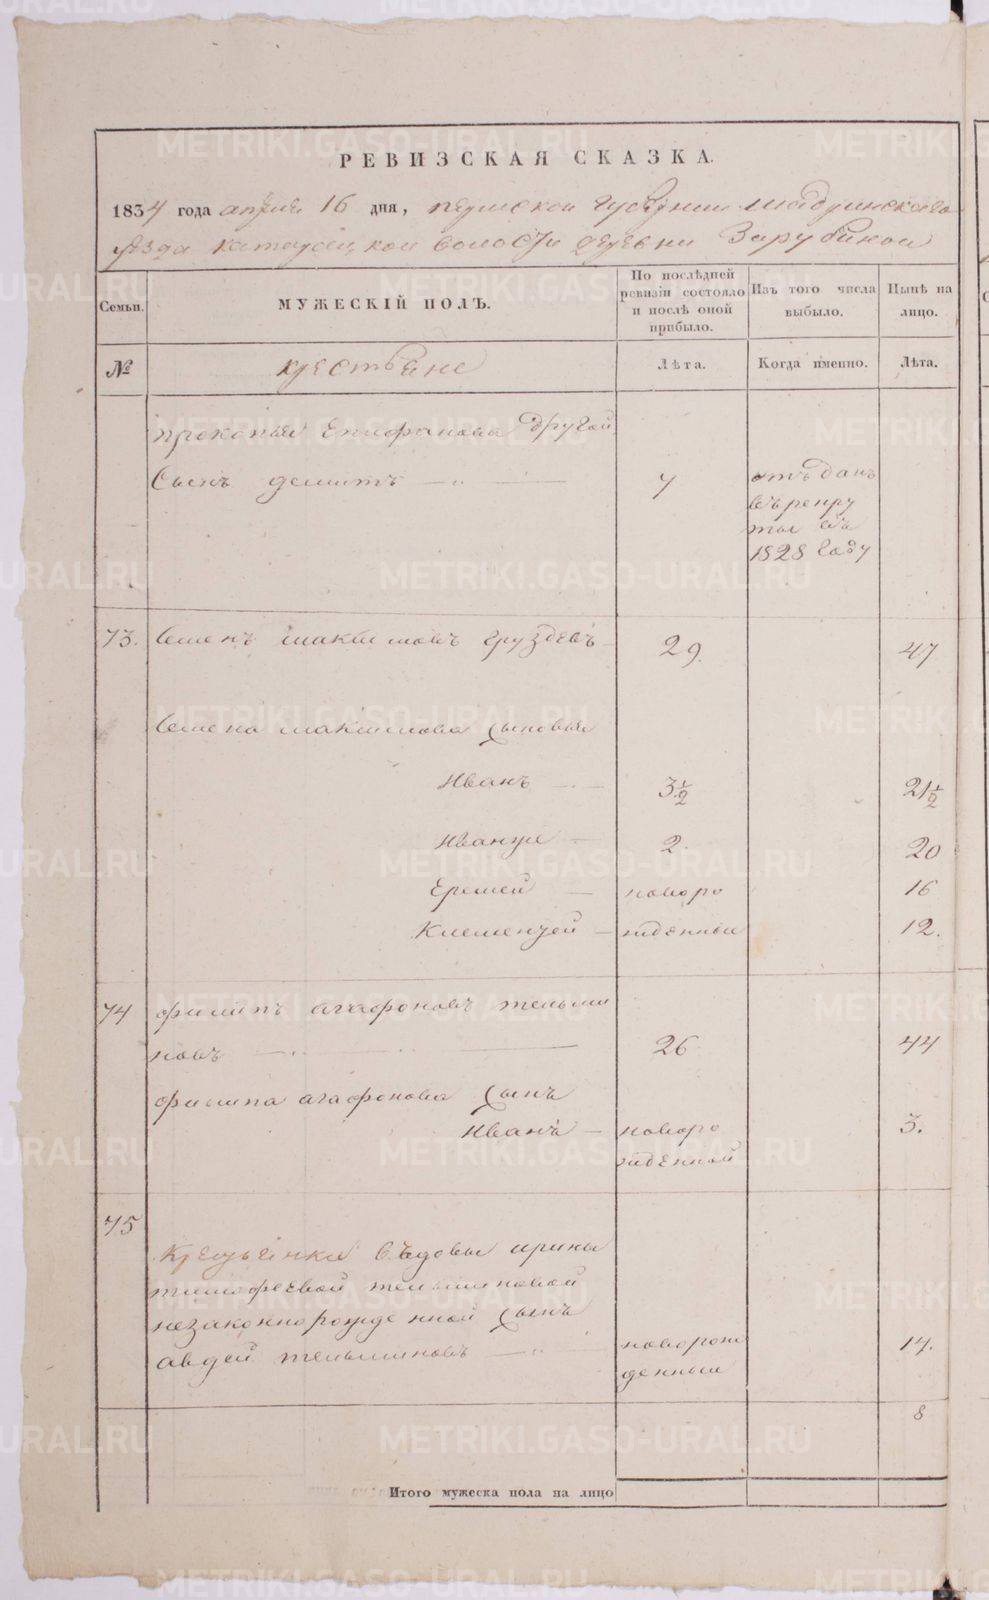 РЕВИЗСКАЯ СКАЗКА.
1834 года апреля 16 дня, пермской губернии шадринскаго
уезда катайской волости деревни Зарубиной
Семьи.
МУЖЕСКІЙ ПОЛЪ.
По послѣдней ревизіи состояло и послѣ оной прибыло.
Изъ того числа выбыло.
Нынѣ на лицо.
№
крестьяне
Лѣта.
Когда именно.
Лѣта.
прокопья епифанова другой
сынъ демитъ 7 отъданъ
въ рекру
ты въ
1828 году
73. Семенъ максимовъ груздевъ 29. 47
Семена максимова сыновья
Иванъ 3½ 21½
Иванже 2. 20
Еремей новоро 16
Клементей жденныи 12.
74 филипъ агафоновъ тельми
новъ 26 44
филипа агафонова сынъ
Иванъ новоро 3.
жденной
75
Крестьянки въдовы ирины
тимофеевой тельминовой
незаконнорожденной сынъ
авдей тельминовъ новорож 14.
денныи
8
Итого мужеска пола на лицо
METRIKI.GASO-URAL.RU